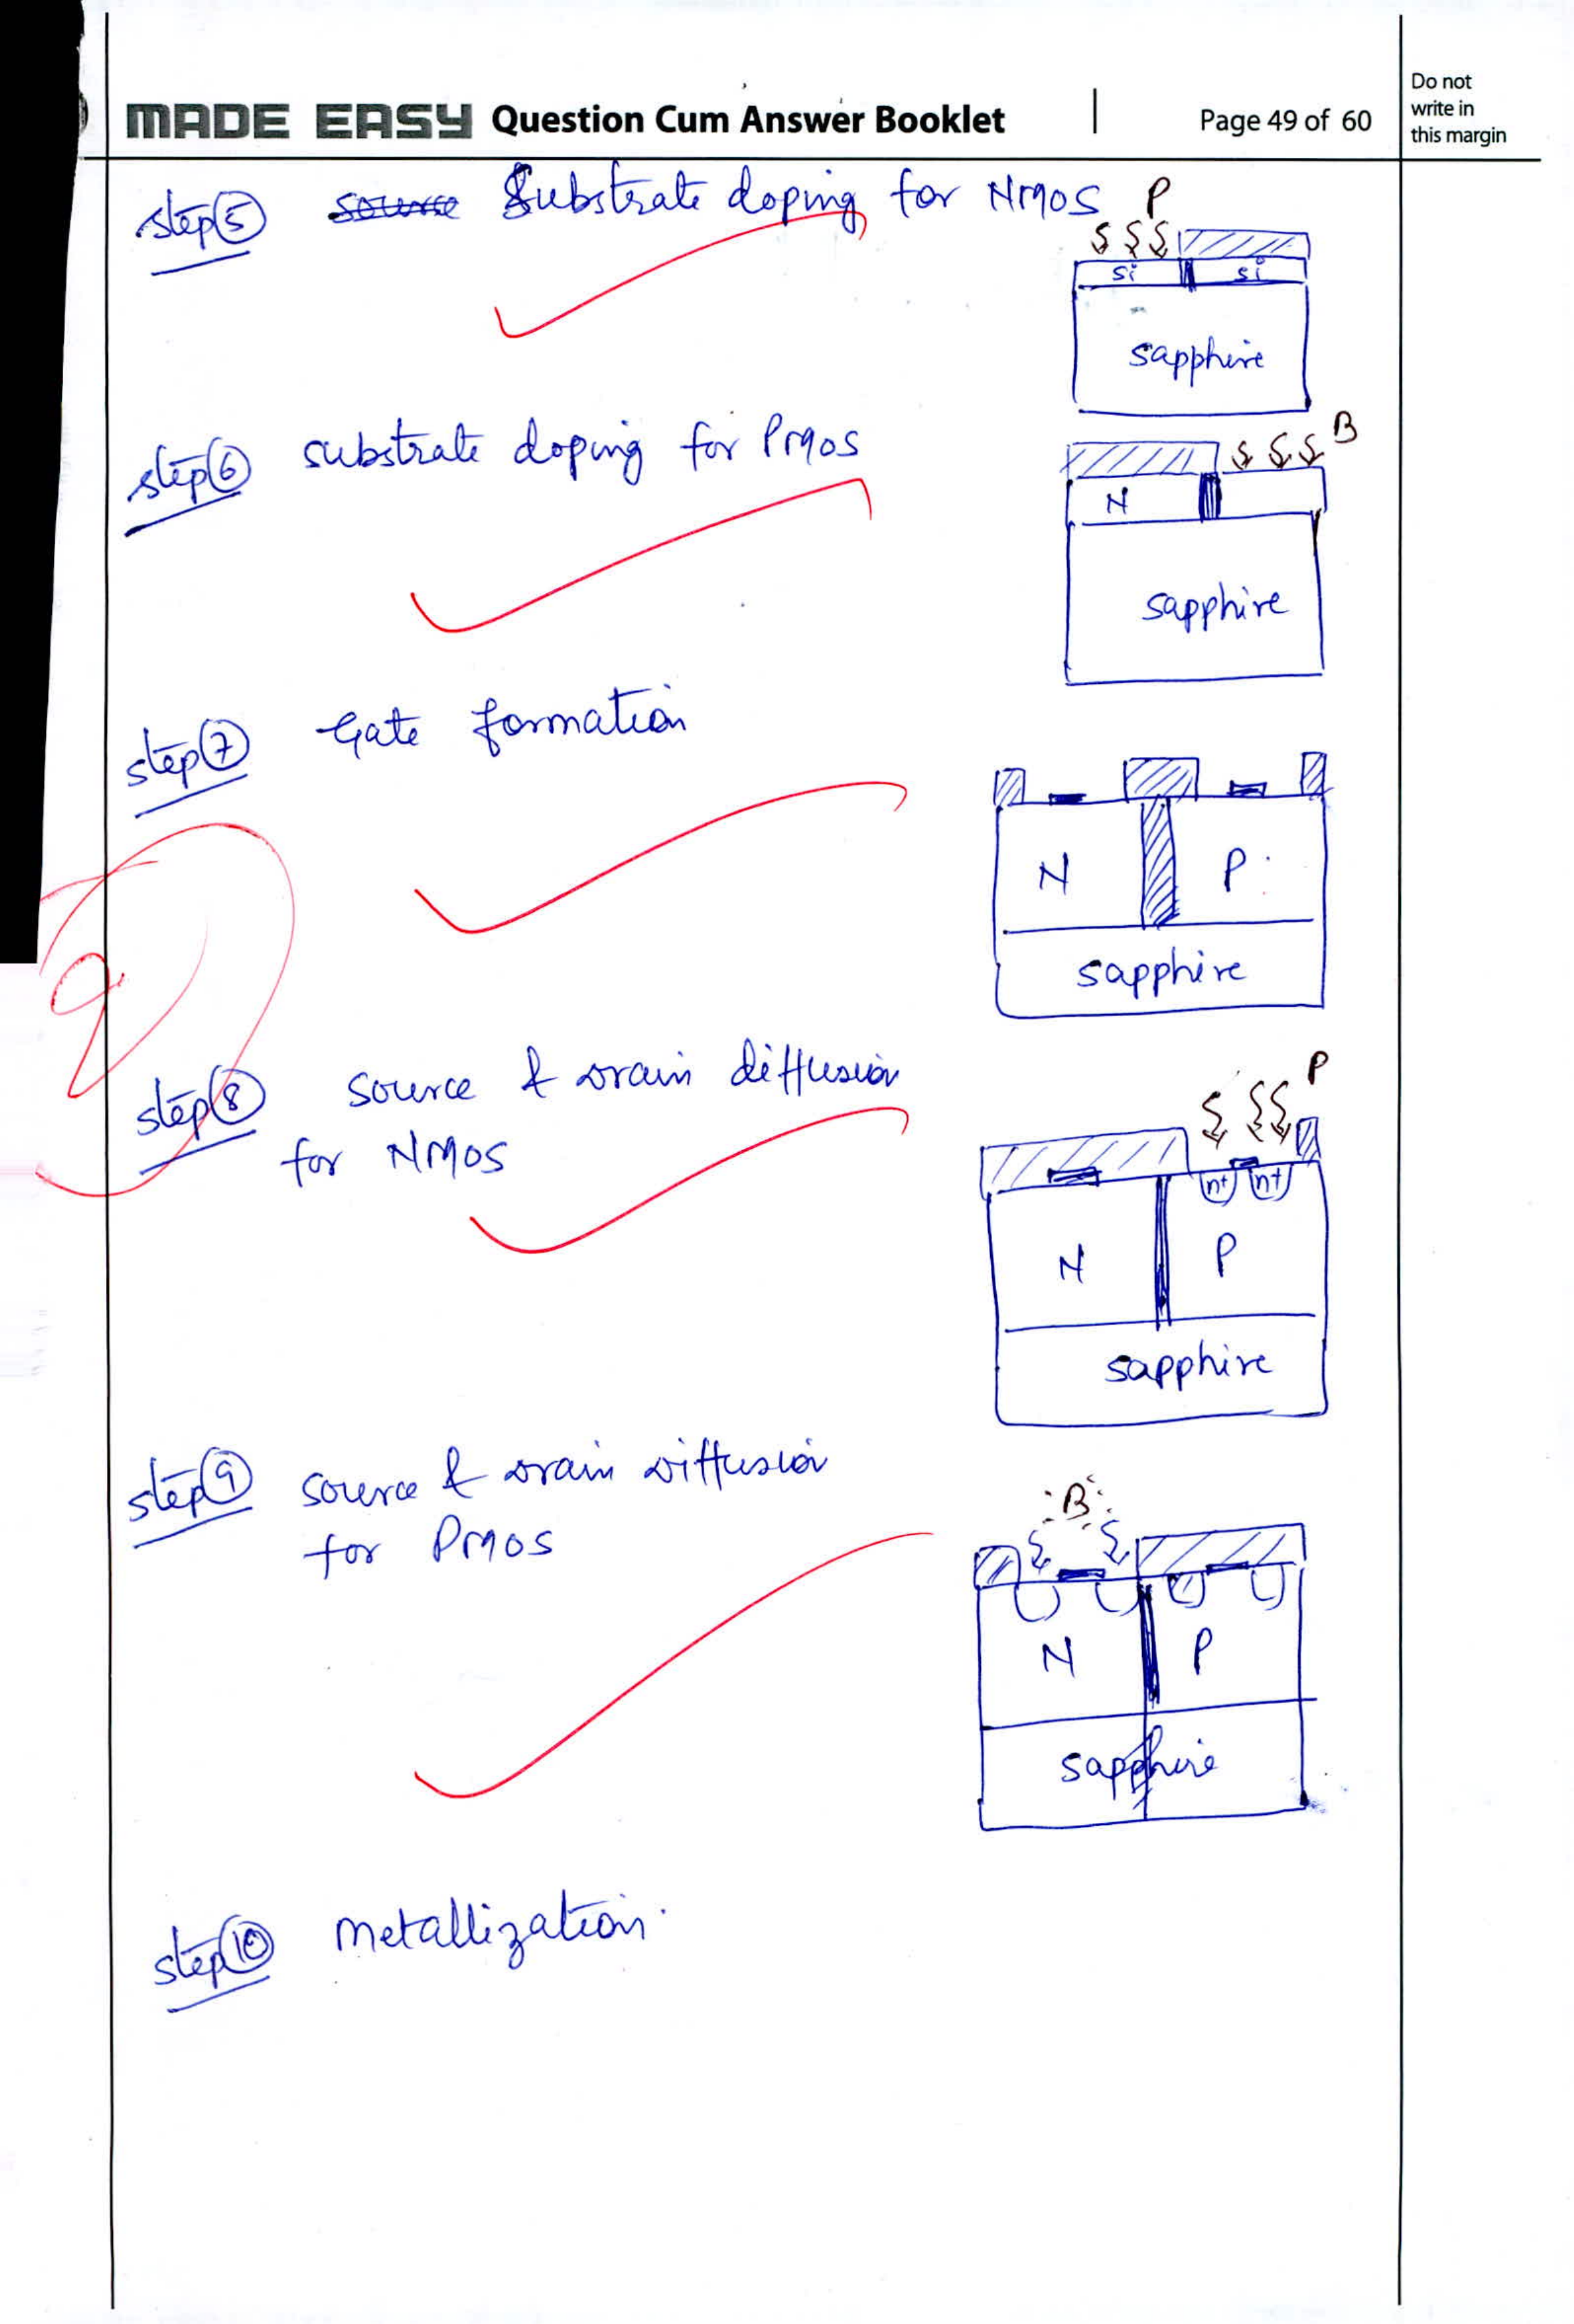 MADE EASY Question Cum Answer Booklet
Page 49 of 60
Do not
write in
this margin
step 5 Substrate doping for NMOS
P
si si
sapphire
step 6 substrate doping for PMOS
B
N
sapphire
step 7 Gate formation
N P
sapphire
step 8 source & drain diffusion
for NMOS
P
n+ n+
N P
sapphire
step 9 source & drain diffusion
for PMOS
B
N P
sapphire
step 10 Metallization.